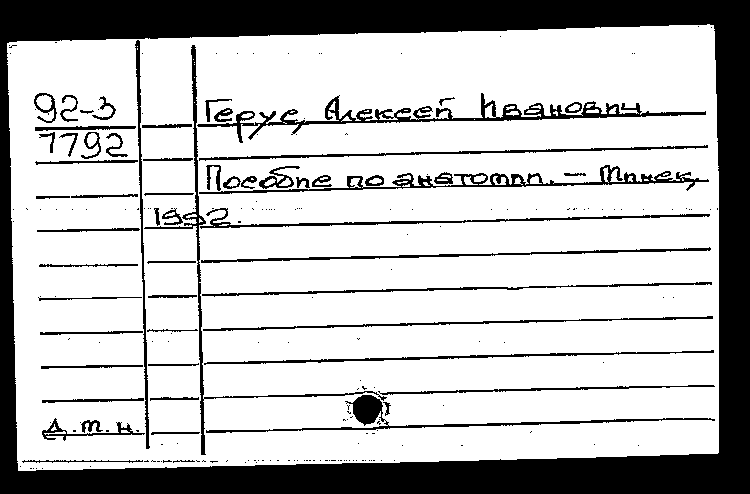 92-3
Герус, Алексей Иванович.
1792
Пособие по анатомии. – Минск,
1992.
д.т.н.